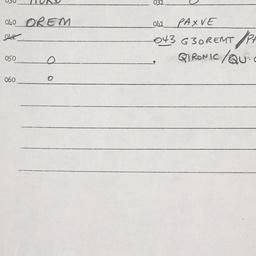 040 OREM 042 PAXVE
043 G30REMT
050 O QIRONIC/QU.
060 O